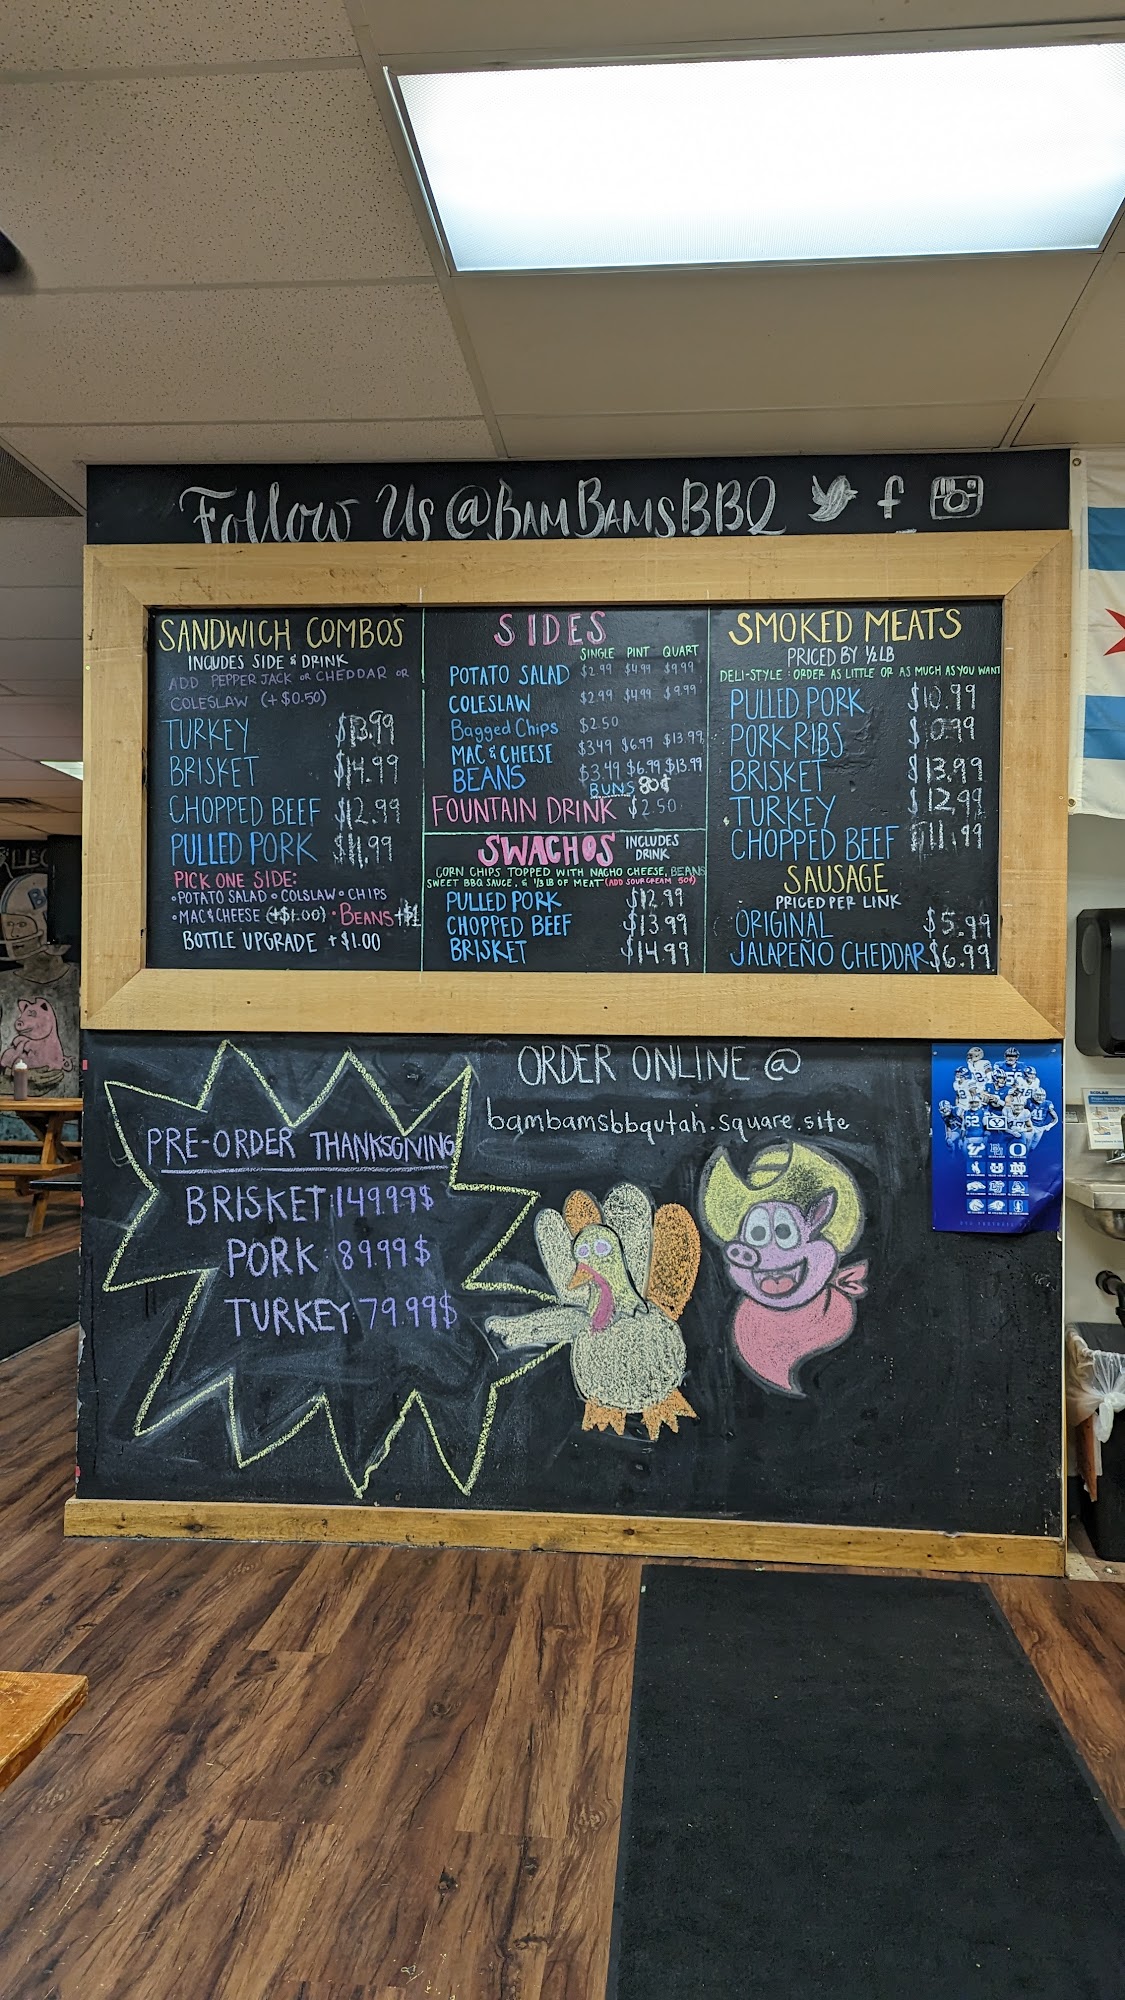 Follow Us @BamBamsBBQ
SANDWICH COMBOS
INCLUDES SIDE & DRINK
ADD PEPPER JACK OR CHEDDAR OR
COLESLAW (+$0.50)
TURKEY $13.99
BRISKET $14.99
CHOPPED BEEF $12.99
PULLED PORK $11.99
PICK ONE SIDE:
•POTATO SALAD •COLSLAW •CHIPS
•MAC & CHEESE (+$1.00) •BEANS +$1
BOTTLE UPGRADE +$1.00
SIDES
SINGLE PINT QUART
POTATO SALAD $2.99 $4.99 $9.99
COLESLAW $2.99 $4.99 $9.99
Bagged Chips $2.50
MAC & CHEESE $3.49 $6.99 $13.99
BEANS $3.49 $6.99 $13.99
BUNS 80¢
FOUNTAIN DRINK $2.50
SWACHOS INCLUDES DRINK
CORN CHIPS TOPPED WITH NACHO CHEESE, BEANS
SWEET BBQ SAUCE, & 1/3 LB OF MEAT (ADD SOUR CREAM 50¢)
PULLED PORK $12.99
CHOPPED BEEF $13.99
BRISKET $14.99
SMOKED MEATS
PRICED BY 1/2 LB
DELI-STYLE: ORDER AS LITTLE OR AS MUCH AS YOU WANT
PULLED PORK $10.99
PORK RIBS $10.99
BRISKET $13.99
TURKEY $12.99
CHOPPED BEEF $11.99
SAUSAGE
PRICED PER LINK
ORIGINAL $5.99
JALAPEÑO CHEDDAR $6.99
ORDER ONLINE @
bambamsbbqutah.square.site
PRE-ORDER THANKSGNING
BRISKET 149.99$
PORK 89.99$
TURKEY 79.99$